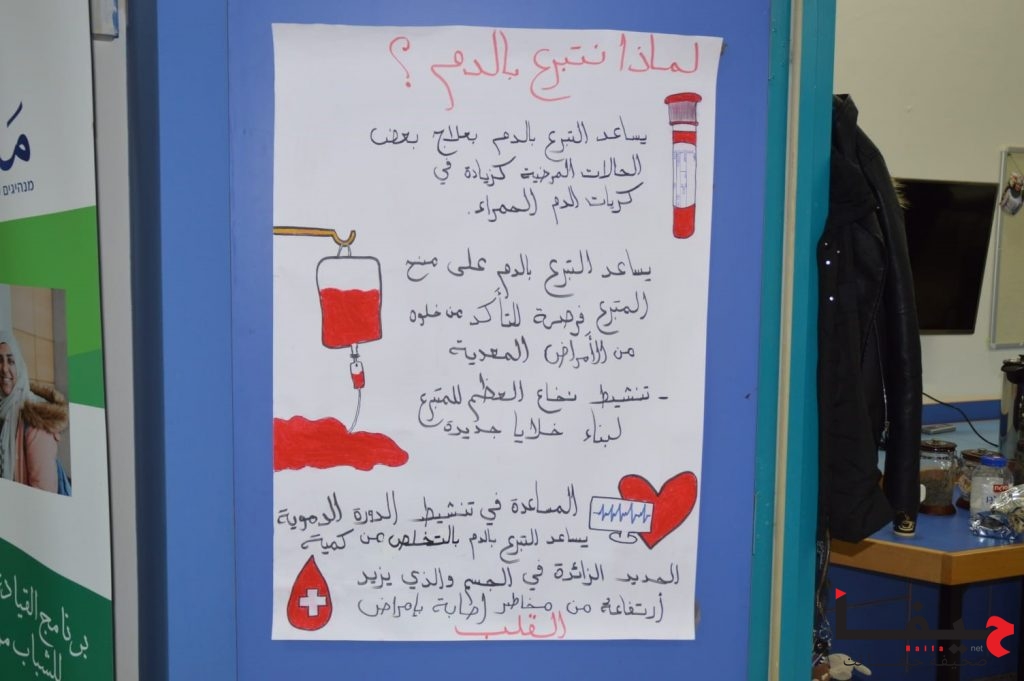 لماذا نتبرع بالدم ؟
يساعد التبرع بالدم بعلاج بعض
الحالات المرضية كزيادة في
كريات الدم الحمراء.
يساعد التبرع بالدم على منح
المتبرع فرصة للتأكد من خلوه
من الأمراض المعدية
- تنشيط نخاع العظم للمتبرع
لبناء خلايا جديدة
المساعدة في تنشيط الدورة الدموية
يساعد التبرع بالدم بالتخلص من كمية
الحديد الزائدة في الجسم والذي يزيد
أرتفاعه من مخاطر إصابة بإمراض
القلب
מנהיגים
برنامج القيادة
للشباب
حيفا
Haifa net
صحيفة